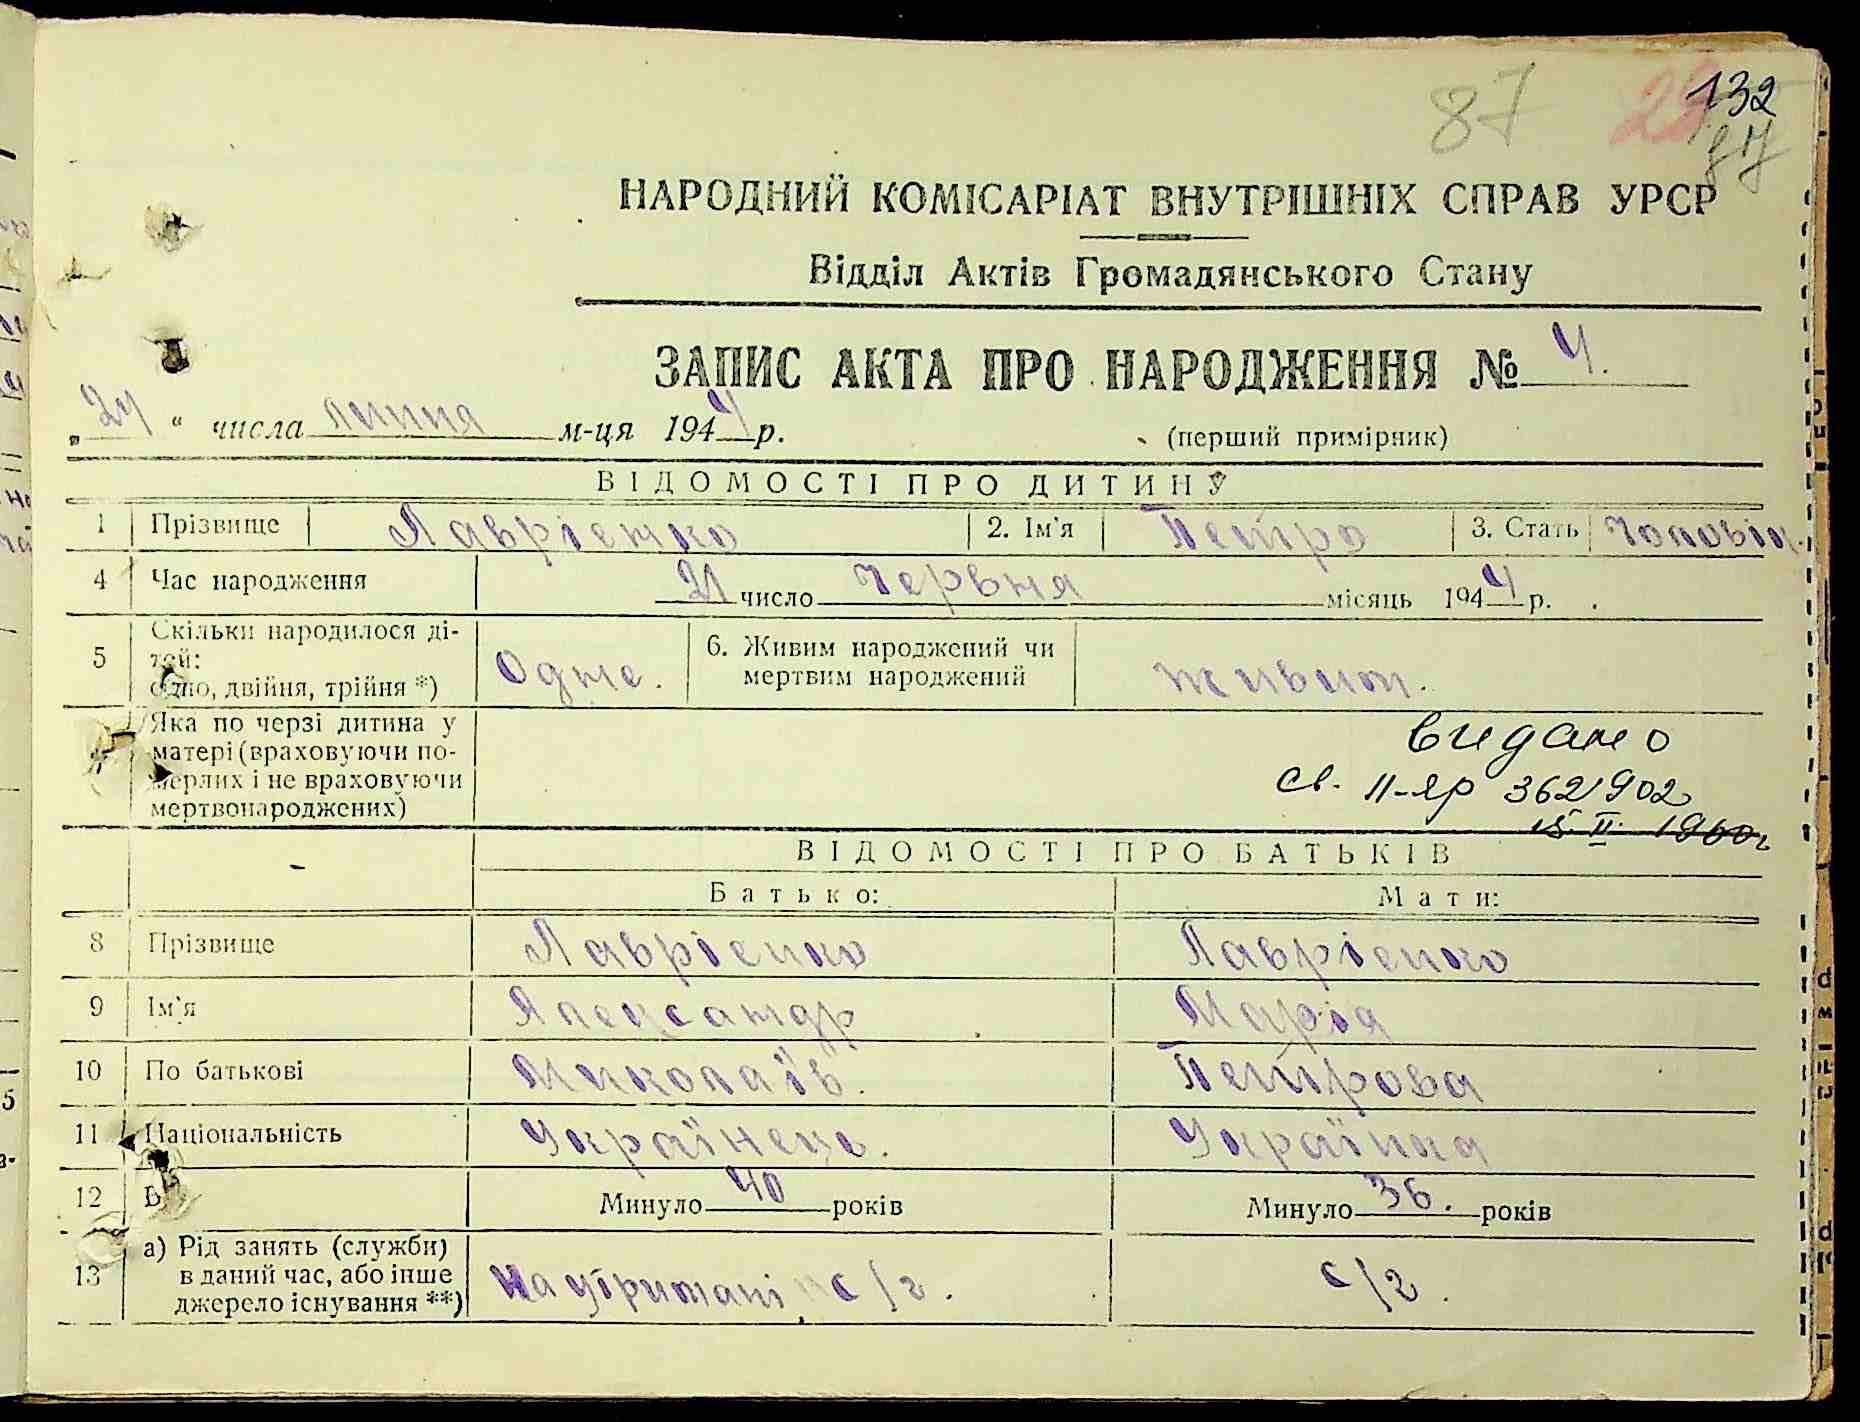 87 132
НАРОДНИЙ КОМІСАРІАТ ВНУТРІШНІХ СПРАВ УРСР
Відділ Актів Громадянського Стану
ЗАПИС АКТА ПРО НАРОДЖЕННЯ № 4.
„24“ числа липня м-ця 1944 р. (перший примірник)
ВІДОМОСТІ ПРО ДИТИНУ
1 Прізвище Лаврієнко 2. Ім'я Петро 3. Стать чоловіч.
4 Час народження 21 число червня місяць 1944 р.
5 Скільки народилося ді-
тей:
одно, двійня, трійня *) Одне. 6. Живим народжений чи
мертвим народжений живим.
Яка по черзі дитина у
матері (враховуючи по-
мерлих і не враховуючи
мертвонароджених)
видано
св. II-яр 362902
15. II. 1960г
ВІДОМОСТІ ПРО БАТЬКІВ
Батько: Мати:
8 Прізвище Лаврієнко Лаврієнко
9 Ім'я Александр Марія
10 По батькові Миколаїв. Петрова
11 Національність Українець. Українка
12 В Минуло 40 років Минуло 36. років
13 а) Рід занять (служби)
в даний час, або інше
джерело існування **) на утримані с/г. с/г.